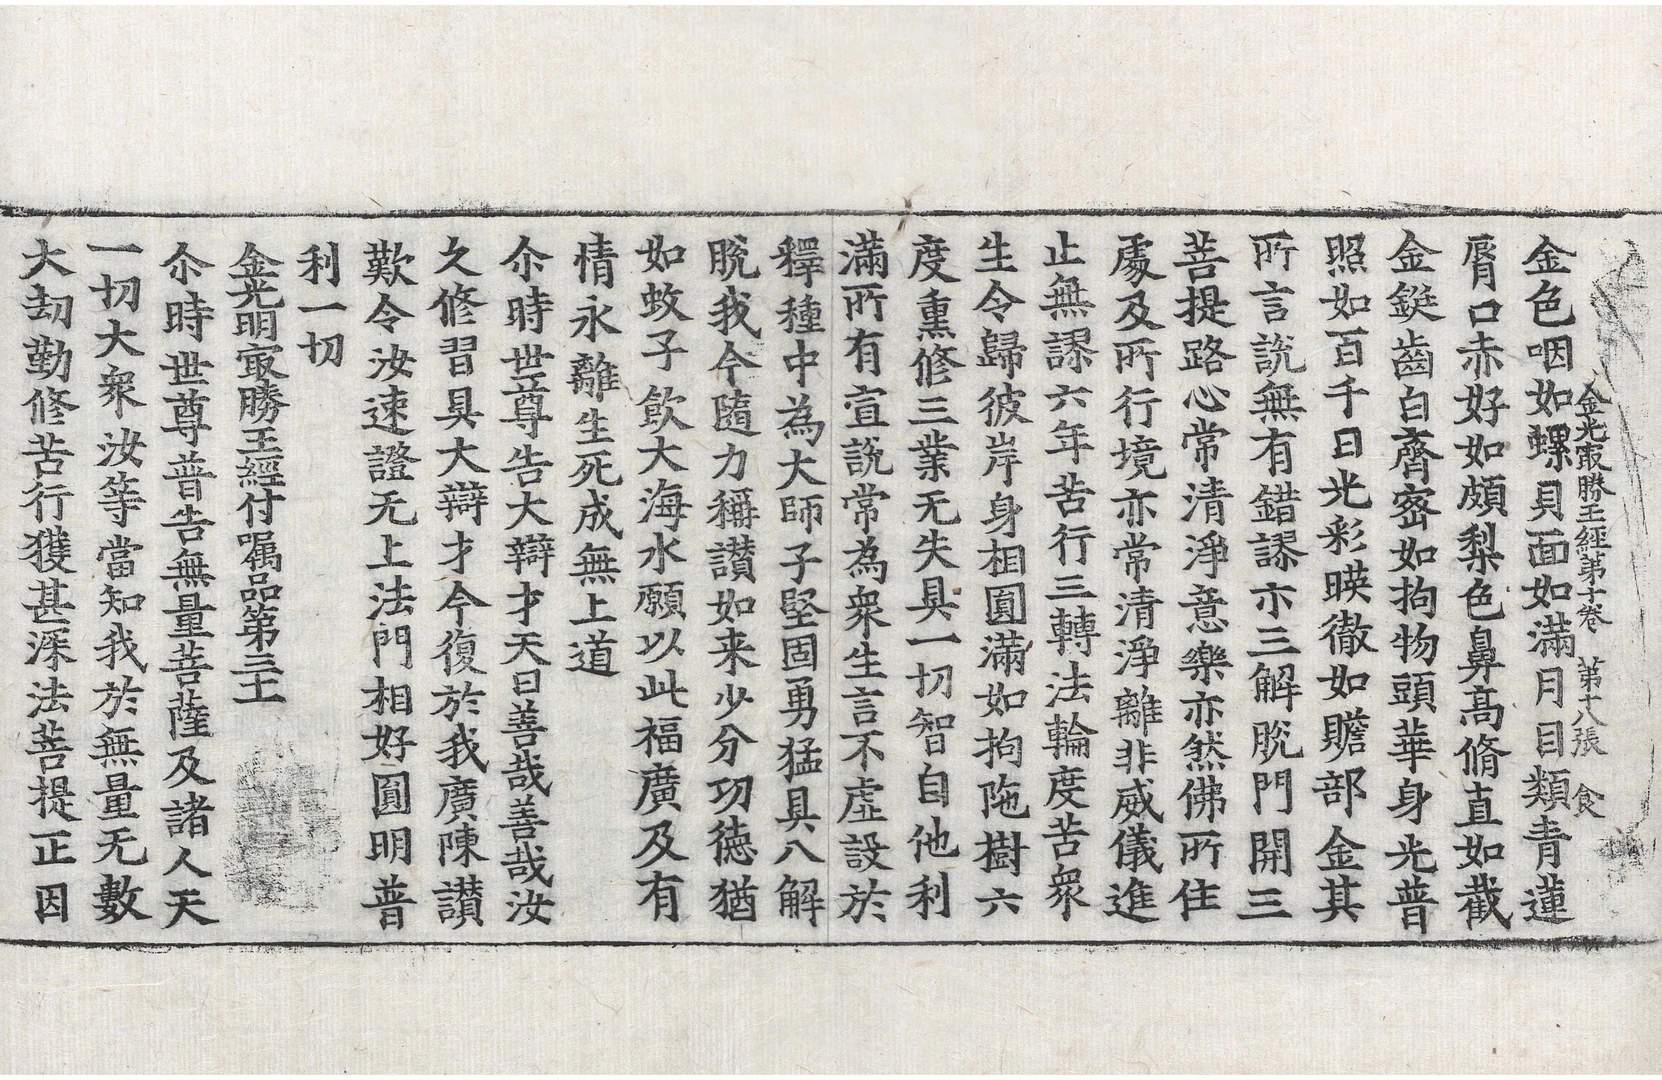 金光㝡勝王經第十卷 第十八張 食
金色咽如螺貝面如滿月目類青蓮
脣口赤好如頗梨色鼻高脩直如截
金鋌齒白齊密如拘物頭華身光普
照如百千日光彩暎徹如贍部金其
所言說無有錯謬亦三解脫門開三
菩提路心常清淨意樂亦然佛所住
處及所行境亦常清淨離非威儀進
止無謬六年苦行三轉法輪度苦衆
生令歸彼岸身相圓滿如拘陁樹六
度熏修三業无失具一切智自他利
滿所有宣說常為衆生言不虛設於
釋種中為大師子堅固勇猛具八解
脫我今隨力稱讃如来少分功德猶
如蚊子飲大海水願以此福廣及有
情永離生死成無上道
尒時世尊告大辯才天曰善哉善哉汝
久修習具大辯才今復於我廣陳讃
歎令汝速證无上法門相好圓明普
利一切
金光明㝡勝王經付囑品第三十一
尒時世尊普告無量菩薩及諸人天
一切大衆汝等當知我於無量无數
大劫勤修苦行獲甚深法菩提正因